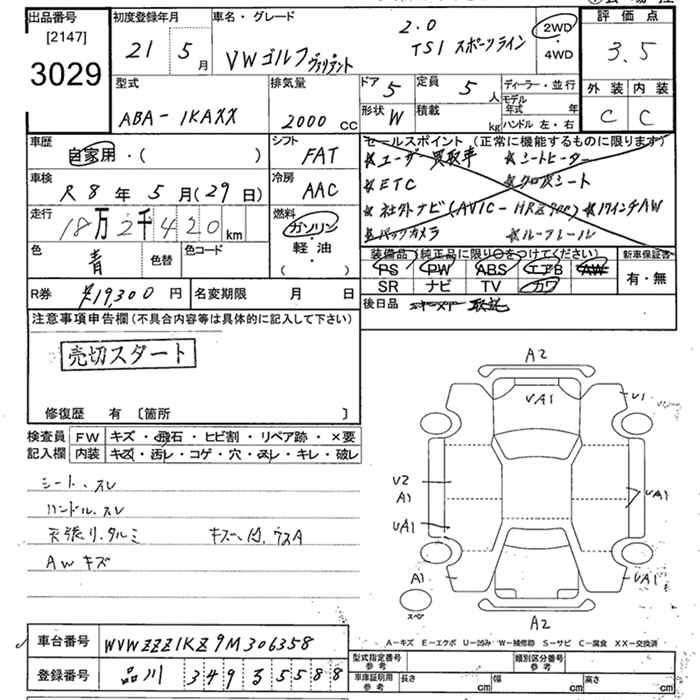 出品番号
[2147]
3029
初度登録年月
21 5 月
車名・グレード
VWゴルフヴァリアント
2.0
TSI スポーツライン
2WD
・
4WD
評価点
3.5
外装 内装
C C
型式
ABA-1KAXX
排気量
2000 CC
ドア 5
定員 5 人
形状 W
積載 kg
ディーラー・並行
モデル年式 年
ハンドル 左・右
車歴
自家用・( )
シフト
FAT
車検
R 8 年 5 月(29日)
冷房
AAC
走行
18万2千420 km
燃料
ガソリン
軽・油
( )
色
青
色替
色コード
セールスポイント(正常に機能するものに限ります)
★ユーザー買取車 ★シートヒーター
★ETC ★クロスシート
★社外ナビ(AVIC-HRZ900) ★17インチAW
★バックカメラ ★ルーフレール
装備品(純正品に限り○をつけてください)
PS PW ABS エアB AW
SR ナビ TV カワ
新車保証書
有・無
R券 ¥19,300 円
名変期限 月 日
後日品 取説
注意事項申告欄(不具合内容等は具体的に記入して下さい)
売切スタート
修復歴 有 〔箇所 〕
検査員記入欄
FW キズ・飛石・ヒビ割・リペア跡・×要
内装 キズ・汚レ・コゲ・穴・スレ・キレ・破レ
シート.スレ
ハンドル.スレ
天張リ.タルミ キズ凹.ウスA
AWキズ
A2
UA1
U1
U2
A1
UA1
UA1
A1
UA1
A2
スペア
A-キズ E-エクボ U-凹み W-補修跡 S-サビ C-腐食 XX-交換済
車台番号 WVWZZZ1KZ9M306358
登録番号 品川 349 る 5588
型式指定番号
参考
類別区分番号
参考
車庫証明用
参考
長さ cm 幅 cm 高さ cm